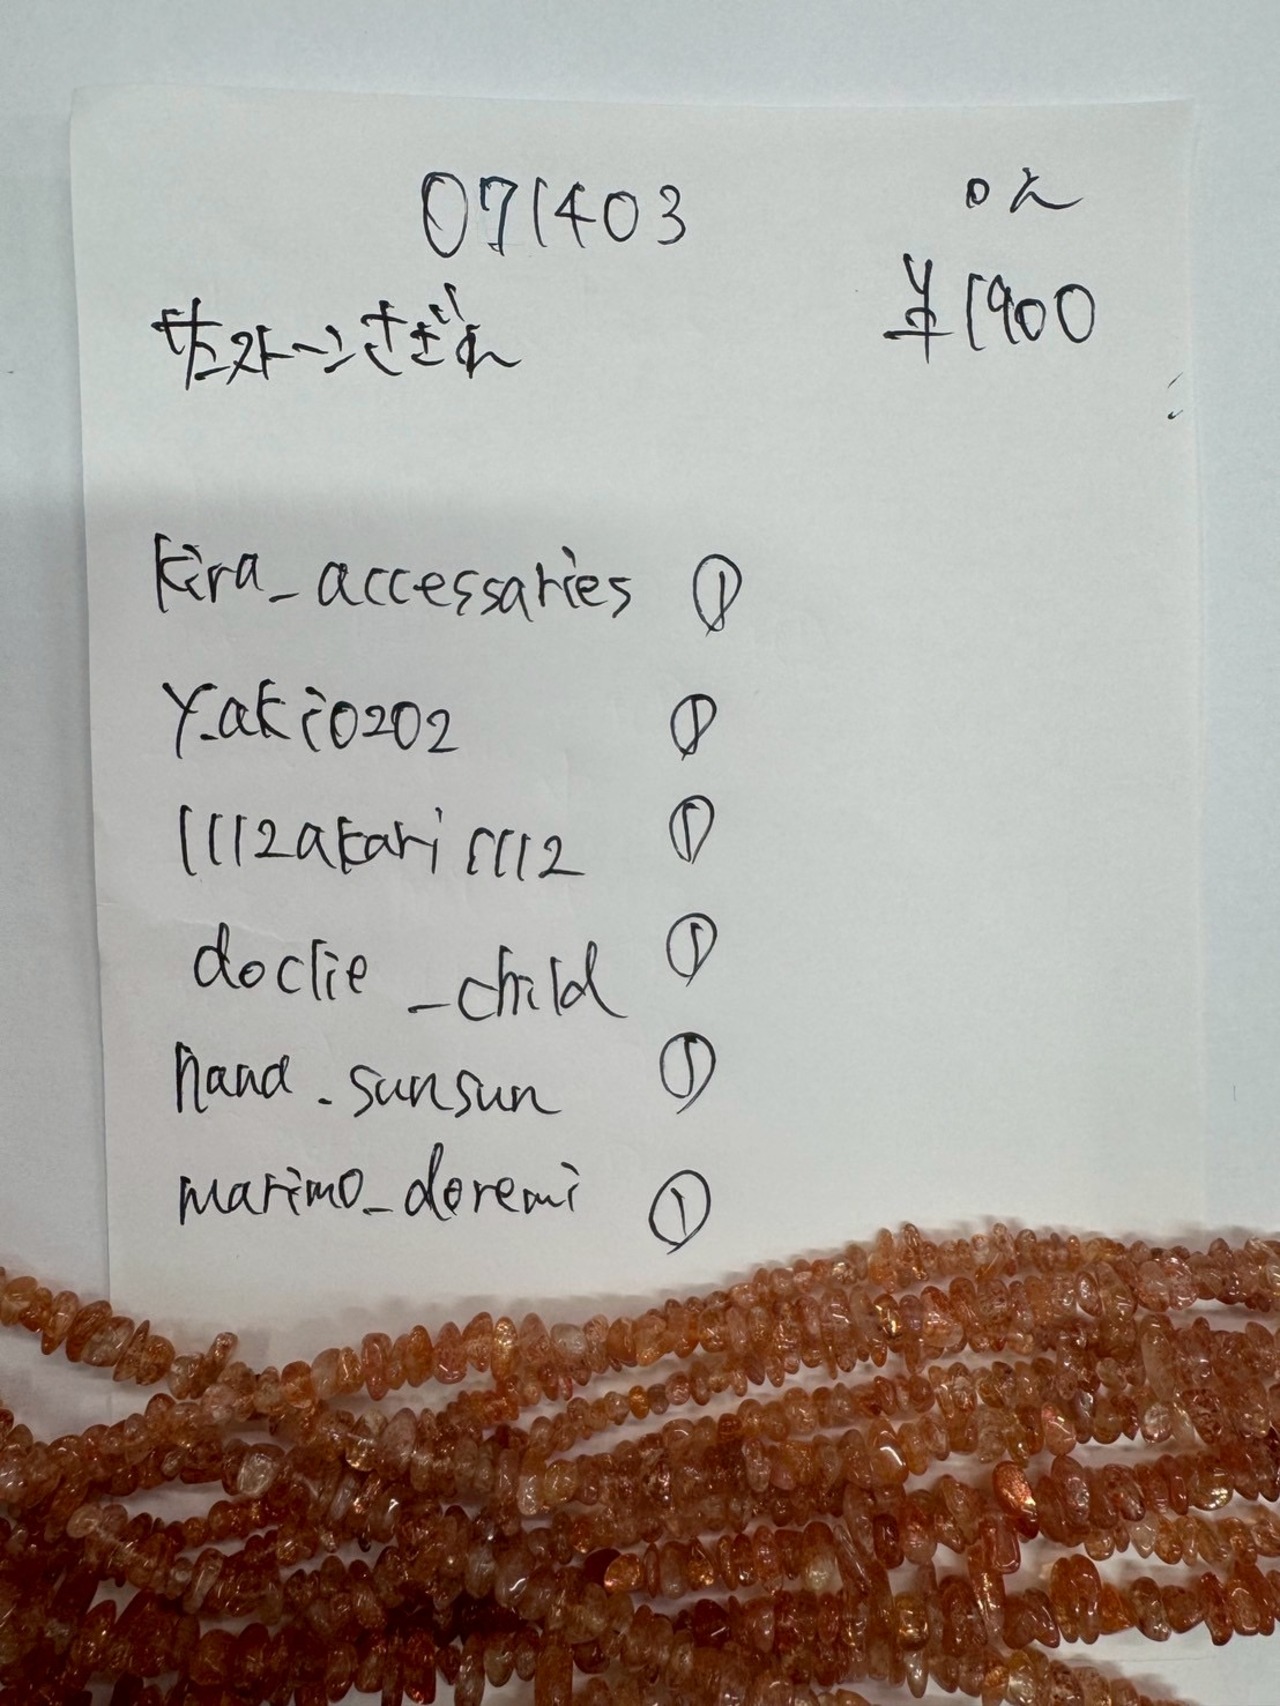 071403
¥1900
サンストーンさざれ
kira_accessaries ①
y.aki0202 ①
1112akari1112 ①
doclie_child ①
hana.sunsun ①
marimo_doremi ①